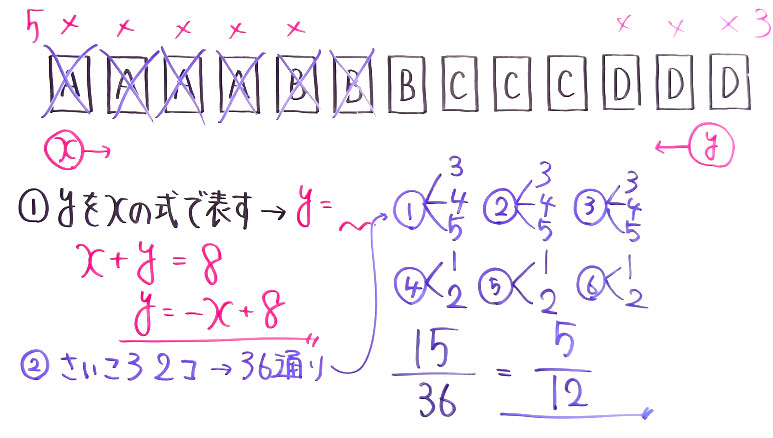 5 × × × × × × × × 3
A A A A B B B C C C D D D
x → ← y
① yをxの式で表す → y = 〜
x + y = 8
y = -x + 8
② さいころ2コ → 36通り
① 3 4 5 ② 3 4 5 ③ 3 4 5
④ 1 2 ⑤ 1 2 ⑥ 1 2
15/36 = 5/12